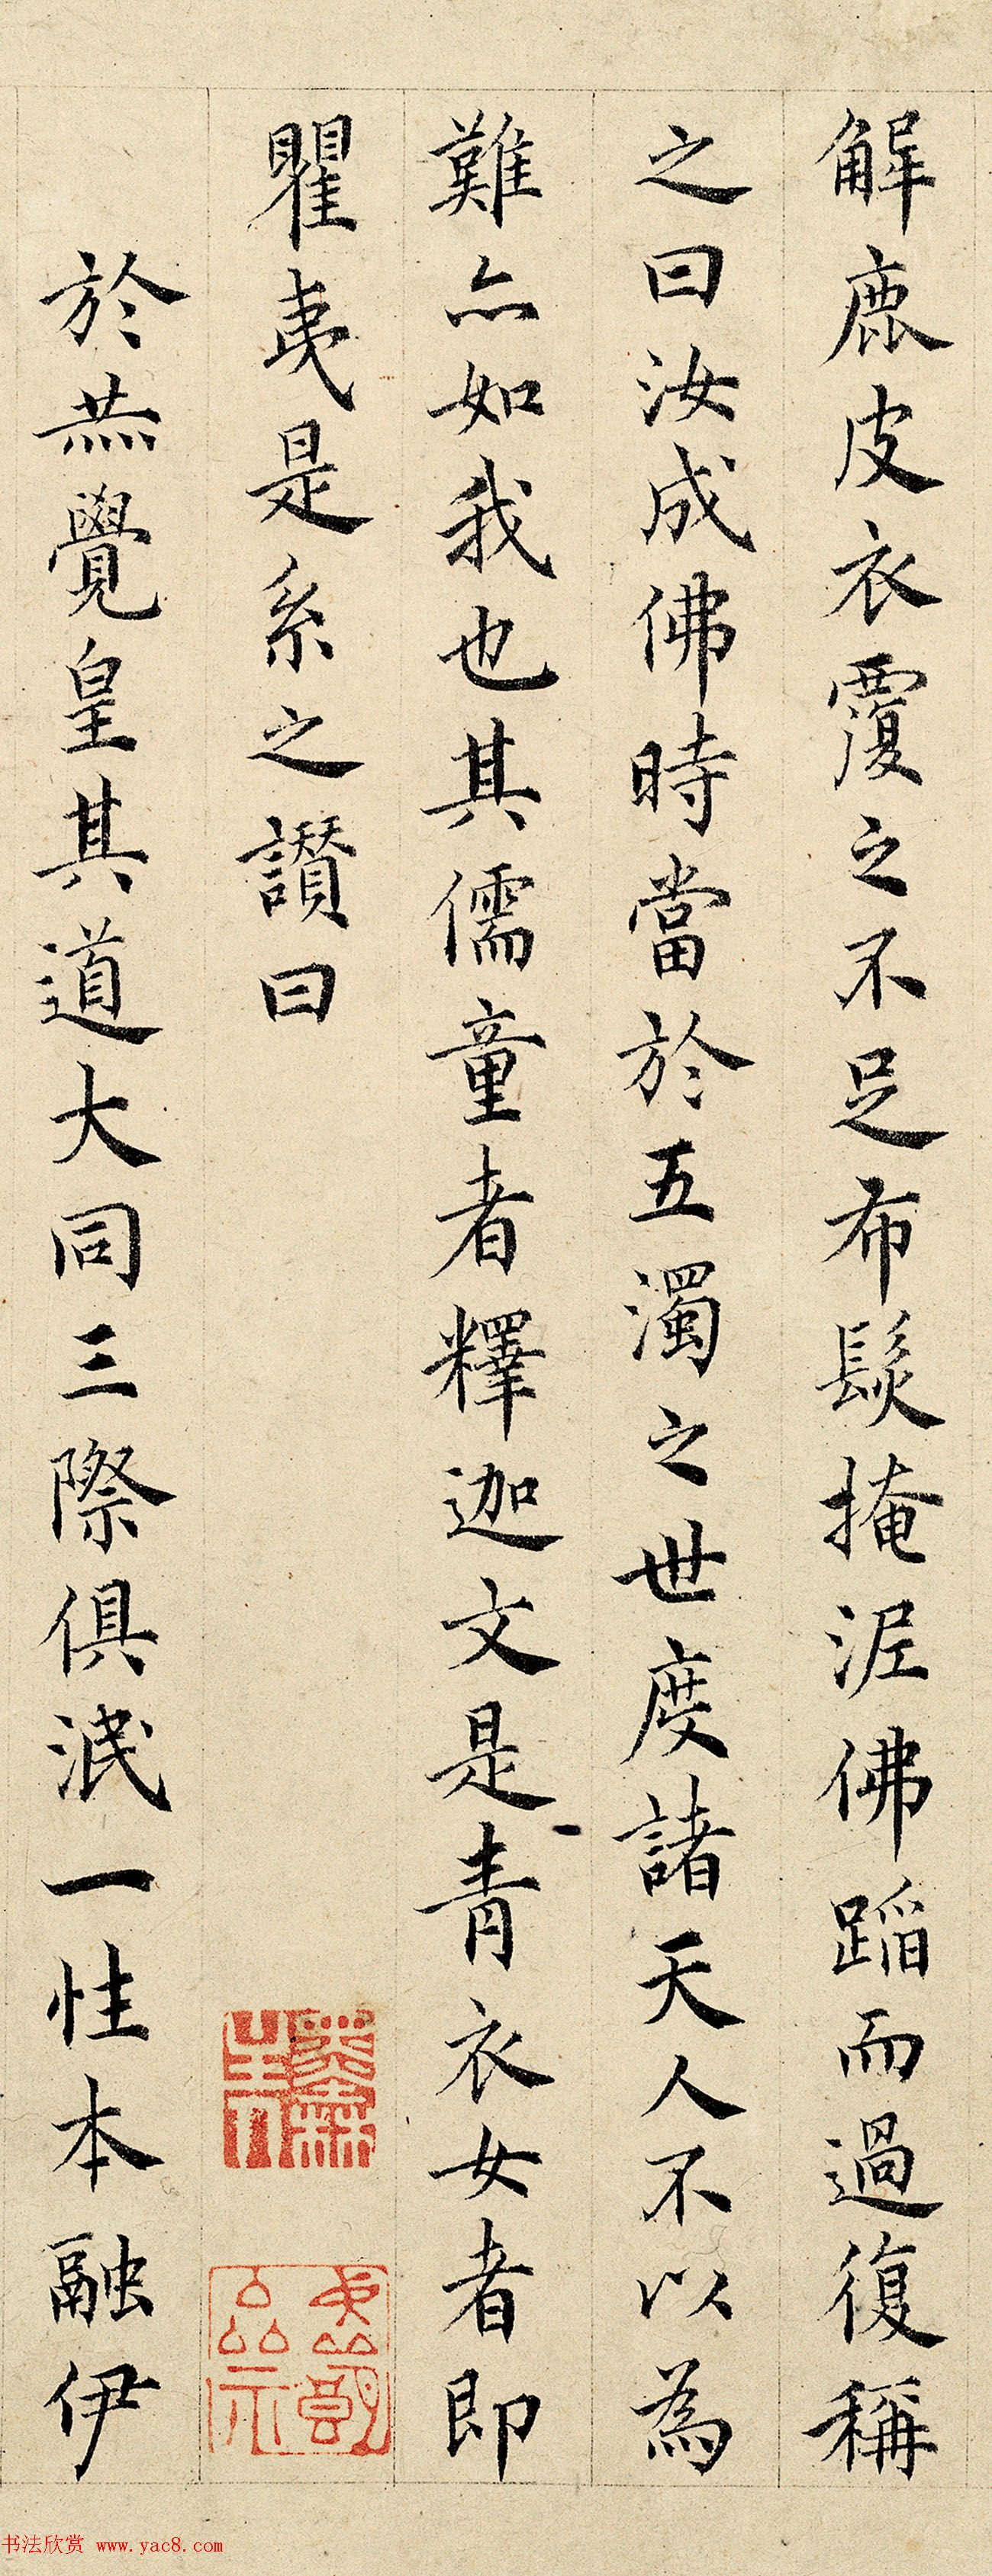 解鹿皮衣覆之不足布髮掩泥佛蹈而過復稱
之曰汝成佛時當於五濁之世度諸天人不以為
難亦如我也其儒童者釋迦文是青衣女者即
瞿夷是系之讚曰
於燕覺皇其道大同三際俱泯一性本融伊
书法欣赏 www.yac8.com